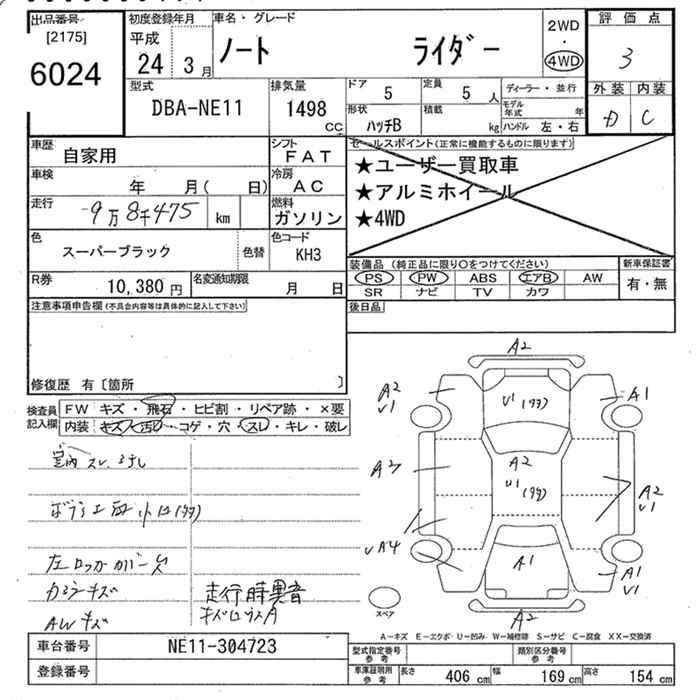 出品番号
[2175]
6024
初度登録年月
平成
24 3月
車名・グレード
ノート ライダー
2WD
・
4WD
評価点
3
外装 内装
D C
型式
DBA-NE11
排気量
1498
CC
ドア
5
定員
5 人
形状
ハッチB
積載
kg
ディーラー・並行
モデル年式 年
ハンドル 左・右
車歴
自家用
シフト
FAT
車検
年 月( 日)
冷房
AC
走行
9万8千475 km
燃料
ガソリン
色
スーパーブラック
色替
色コード
KH3
R券
10,380 円
名変通知期限
月 日
セールスポイント(正常に機能するものに限ります)
★ユーザー買取車
★アルミホイール
★4WD
装備品(純正品に限り○をつけてください)
PS PW ABS エアB AW
SR ナビ TV カワ
新車保証書
有・無
後日品
注意事項申告欄(不具合内容等は具体的に記入して下さい)
修復歴 有〔箇所 〕
検査員記入欄
FW キズ・飛石・ヒビ割・リペア跡・×要
内装 キズ・汚れ・コゲ・穴・スレ・キレ・破レ
室内スレ、
左ロッカカバーキズ
キズ
AWキズ
走行時異音
A2
A2
U1
U1
A1
A2
A2
U1
A2
U1
UA4
A1
A1
U1
A2
スペア
A-キズ E-エクボ U-凹み W-補修跡 S-サビ C-腐食 XX-交換済
車台番号
NE11-304723
登録番号
型式指定番号
参考
類別区分番号
参考
車庫証明用
参考
長さ 406 cm 幅 169 cm 高さ 154 cm